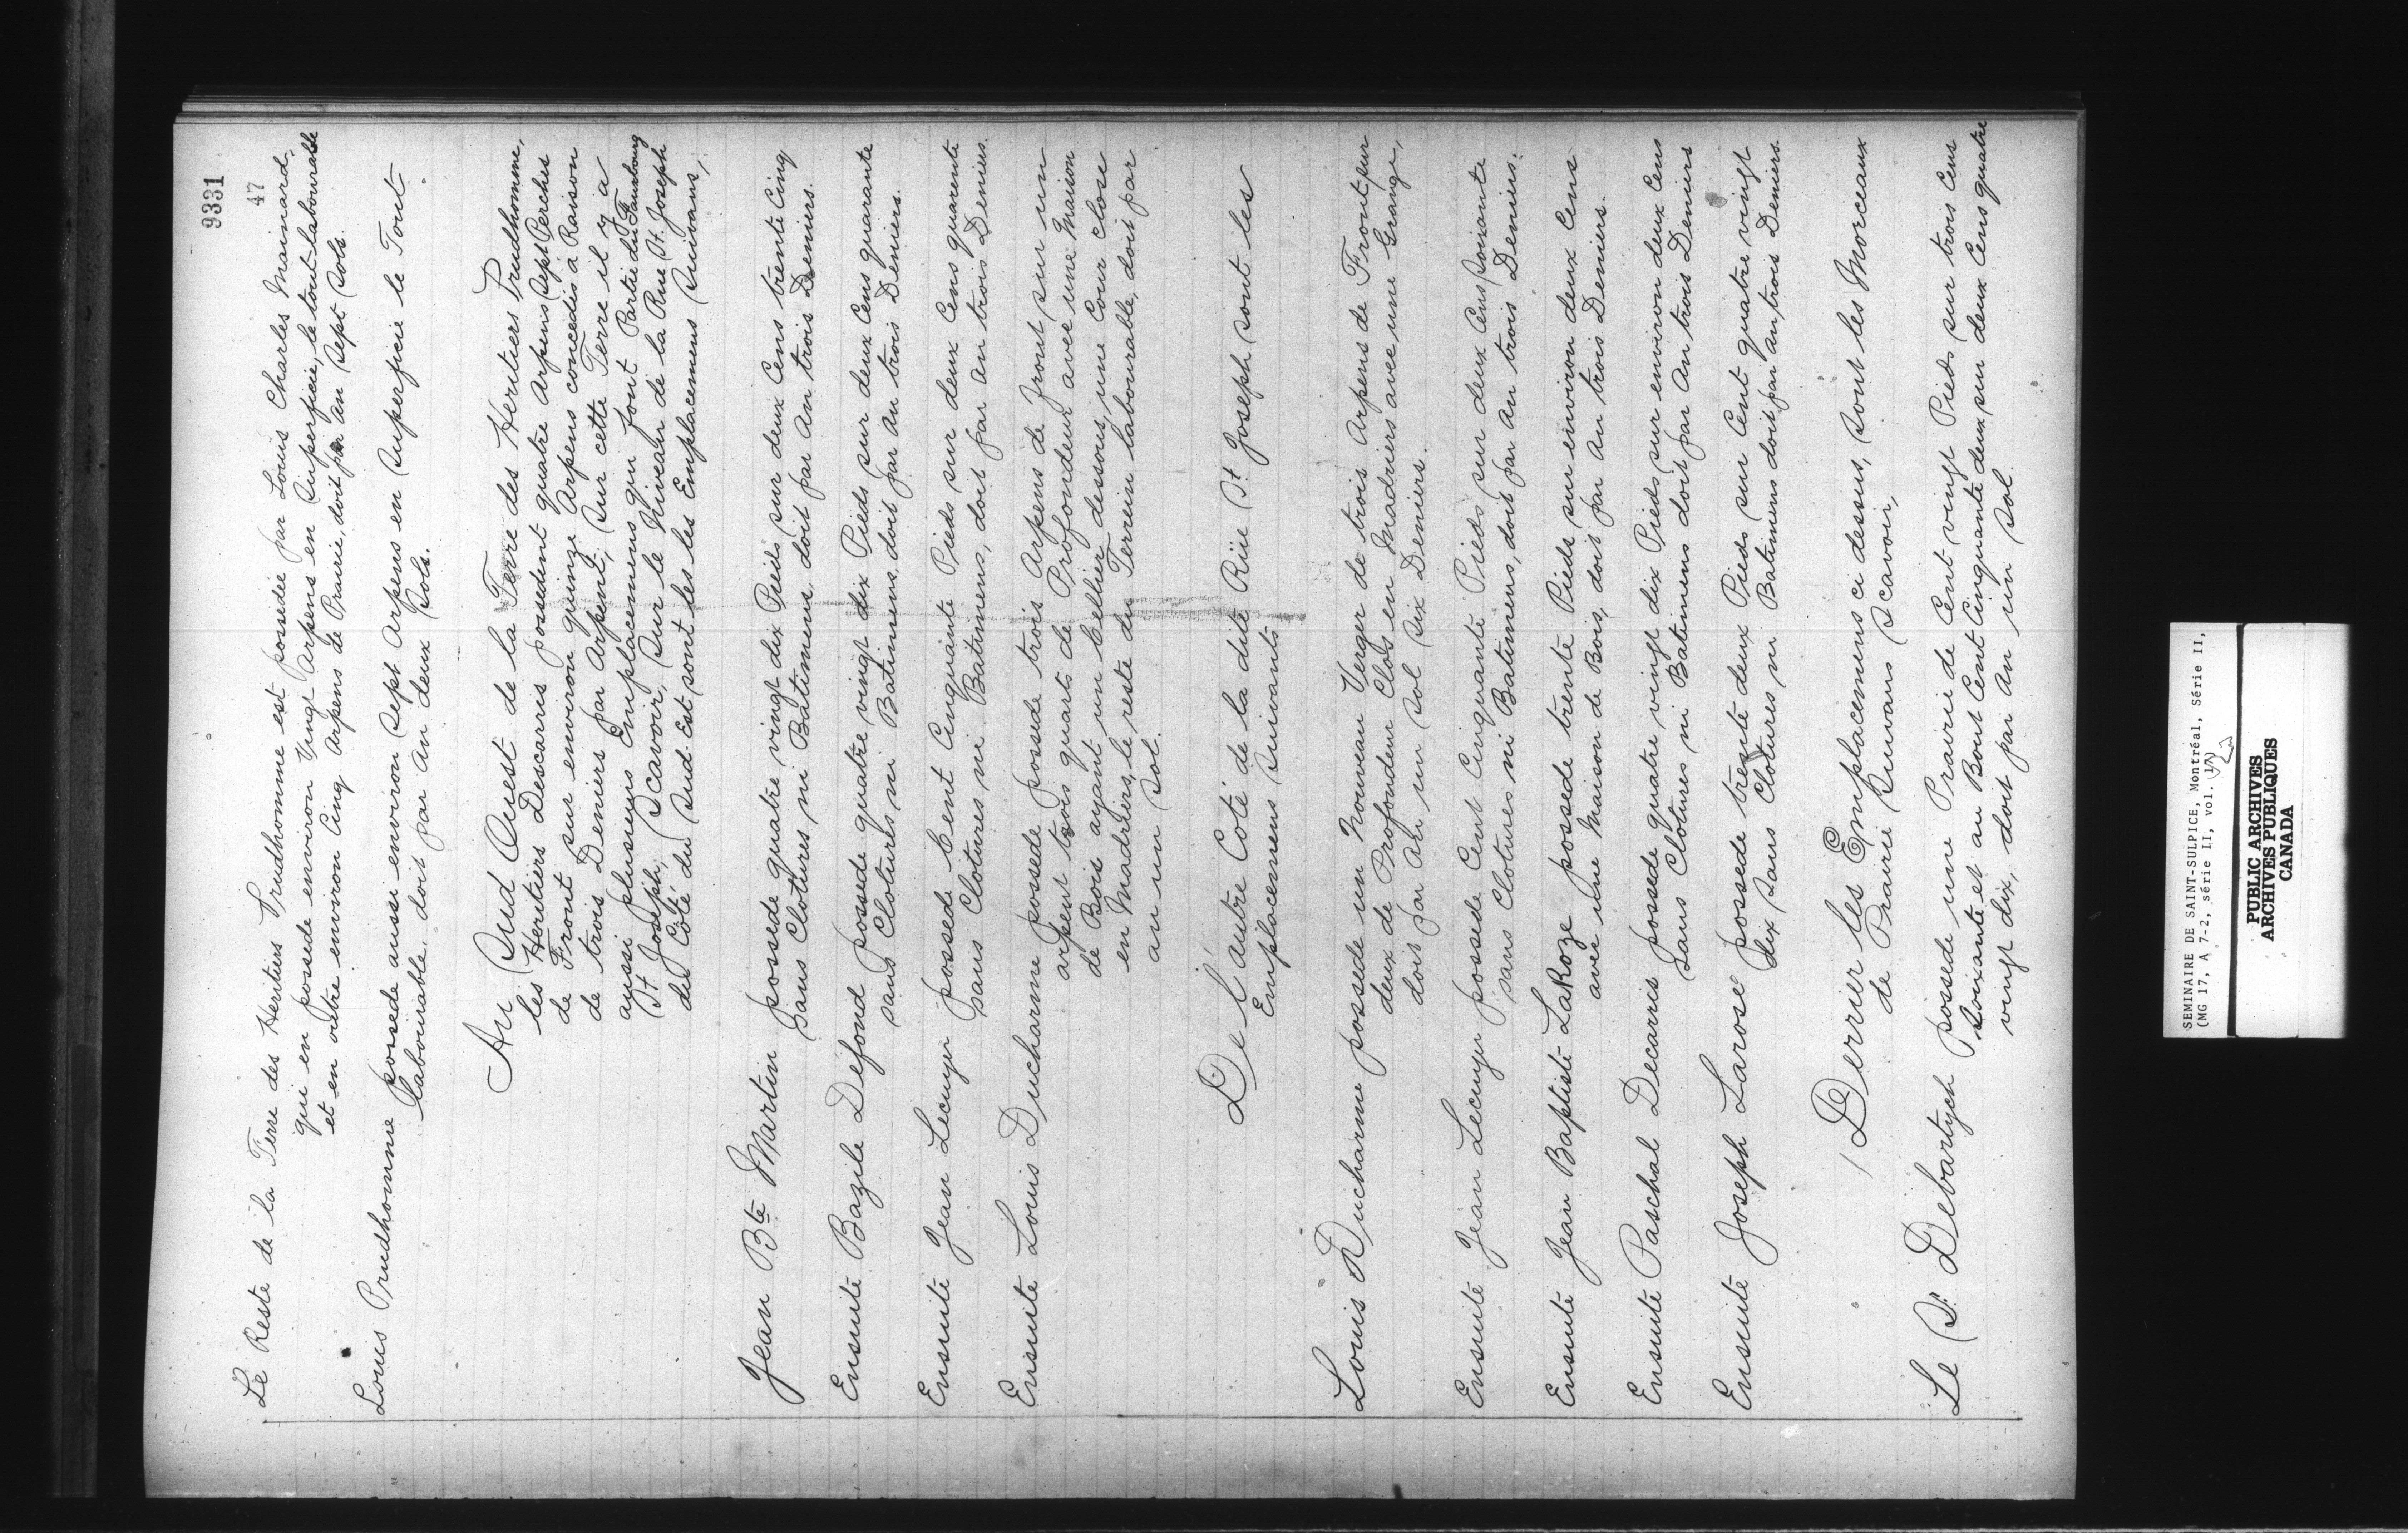 9331
47
Le Reste de la Terre des Heritiers Prudhomme est possedée par Louis Charles Mainard,
qui en possede environ Vingt Arpens en Superficie, le tout labourable
et en outre environ Cinq Arpens de Prairie, doit par An Sept Sols.
Louis Prudhomme possede aussi environ Sept Arpens en Superficie le Tout
labourable, doit par An deux Sols.
Au Sud Ouest de la Terre des Heritiers Prudhomme,
les Heritiers Descarris possedent quatre Arpens Sept Perches
de Front sur environ quinze Arpens concedés à Raison
de trois Deniers par Arpent, Sur cette Terre il y a
aussi plusieurs Emplacemens qui font Partie du Fauxbourg
St. Joseph, Scavoir, Sur le Niveau de la Rue St. Joseph
du Coté du Sud Est sont les Emplacemens Suivans,
Jean Bte Martin possede quatre vingt dix Pieds sur deux Cens trente Cinq
Sans Clotures ni Batimens doit par An trois Deniers.
Ensuite Bazile Defond possede quatre vingt dix Pieds sur deux Cens quarante
sans Clotures ni Batimens, doit par An trois Deniers.
Ensuite Jean Lecuyer possede Cent Cinquante Pieds sur deux Cens quarente
sans Clotures ni Batimens, doit par An trois Deniers.
Ensuite Louis Ducharme possede possede trois Arpens de front sur un
arpent trois quarts de Profondeur avec une Maison
de Bois ayant un Cellier dessous, une Cour close
en Madriers, le reste du Terrein labourable, doit par
an un Sol.
De l'autre Coté de la dite Rüe St. Joseph sont les
Emplacemens Suivants
Louis Ducharme possede un Nouveau Verger de trois Arpens de Front sur
deux de Profondeur Clos en Madriers avec une Grange,
doit par An un Sol Six Deniers.
Ensuite Jean Lecuyer possede Cent Cinquante Pieds sur deux Cens Soixante
sans Clotures ni Batimens, doit par An trois Deniers.
Ensuite Jean Baptiste LaRoze possede trente Pieds sur environ deux Cens
avec une Maison de Bois, doit par An trois Deniers.
Ensuite Paschal Decarris possede quatre vingt dix Pieds sur environ deux Cens
Sans Clotures ni Batimens doit par An trois Deniers
Ensuite Joseph Larose possede trente deux Pieds sur Cent quatre vingt
dix sans Clotures ni Batimens doit par an trois Deniers.
Derrier les Emplacemens ci dessus, sont les Morceaux
de Prairie Suivans Scavoir,
Le Sr. Debartzch Possede une Prairie de Cent vingt Pieds sur trois Cens
Soixante et au Bout Cent Cinquante deux sur deux Cens quatre
vingt dix, doit par An un Sol.
SEMINAIRE DE SAINT-SULPICE, Montréal, Série II,
(MG 17, A 7-2, série II, vol.
PUBLIC ARCHIVES
ARCHIVES PUBLIQUES
CANADA